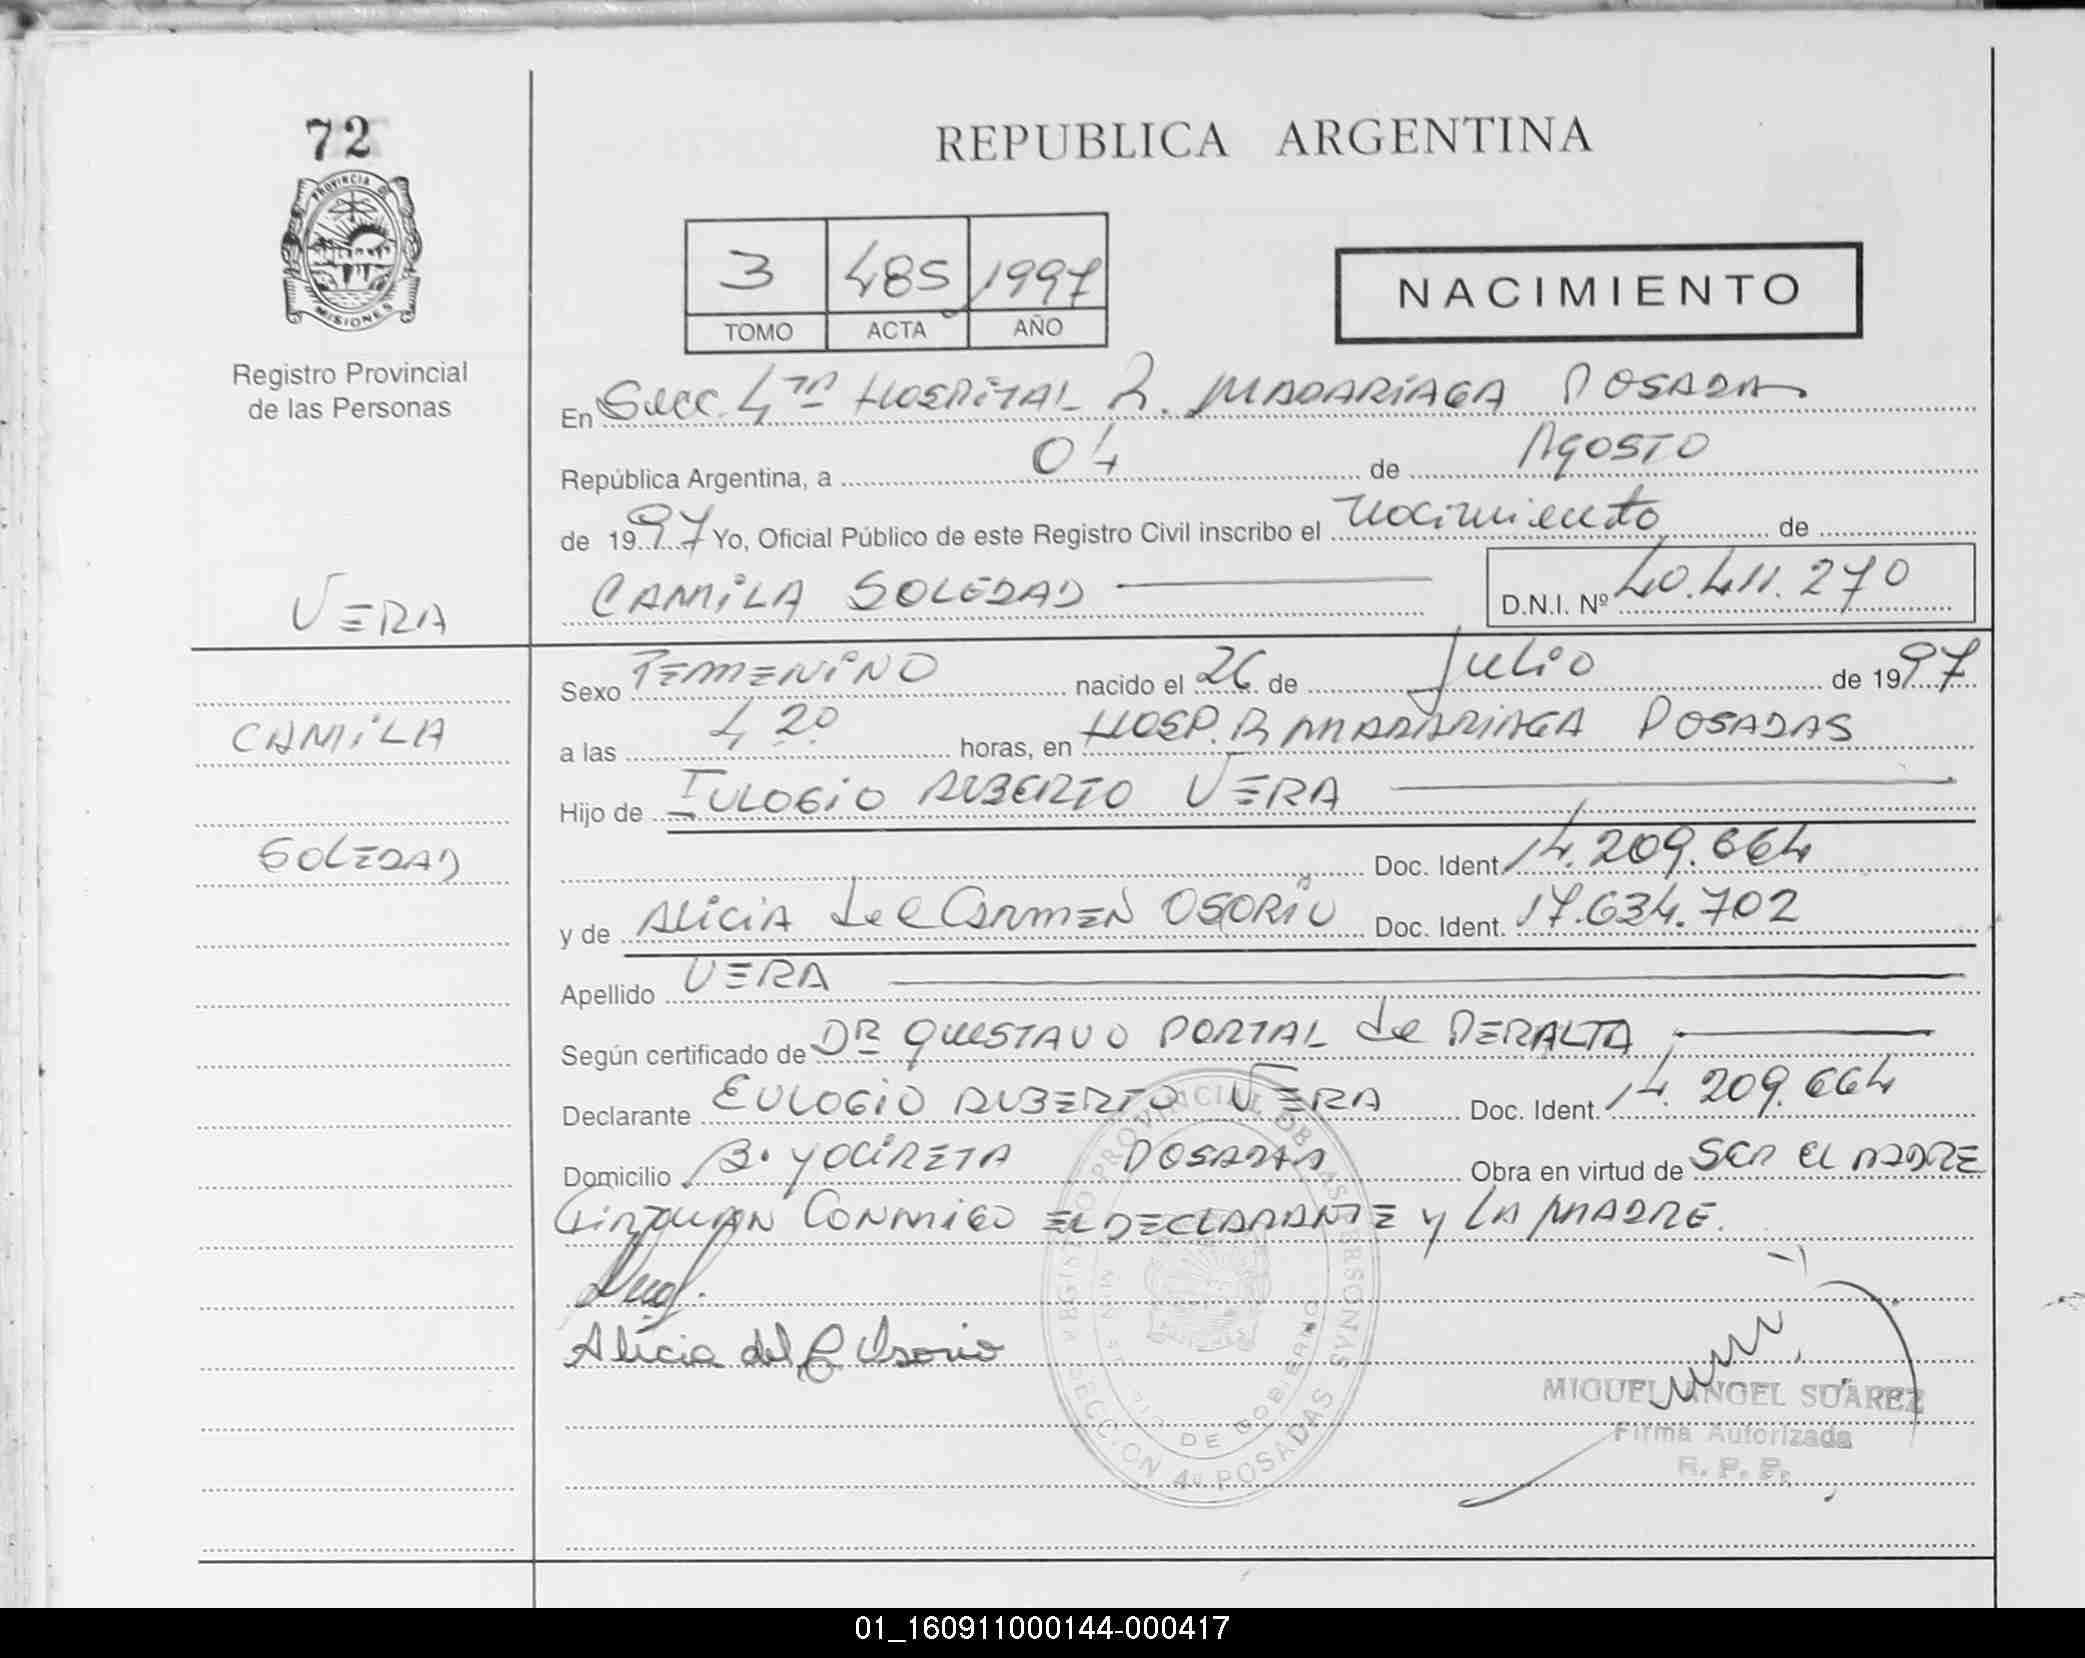 72
PROVINCIA DE
MISIONES
Registro Provincial
de las Personas
REPUBLICA ARGENTINA
3 485 1997
TOMO ACTA AÑO
NACIMIENTO
En Secc. 4ta HOSPITAL R. MADARIAGA POSADAS
República Argentina, a 04 de Agosto
de 1997 Yo, Oficial Público de este Registro Civil inscribo el nacimiento de
VERA
CAMILA SOLEDAD
D.N.I. Nº 40.411.270
Sexo FEMENINO nacido el 26 de Julio de 1997
CAMILA
a las 4 20 horas, en HOSP. R MADARIAGA POSADAS
Hijo de EULOGIO ALBERTO VERA
SOLEDAD
Doc. Ident. 14.209.664
y de ALICIA del CARMEN OSORIO Doc. Ident. 17.634.702
Apellido VERA
Según certificado de DR GUSTAVO PORTAL de PERALTA
Declarante EULOGIO ALBERTO VERA Doc. Ident. 14.209.664
Domicilio B. YACIRETA POSADAS Obra en virtud de SER EL PADRE
FIRMAN CONMIGO EL DECLARANTE y LA MADRE.
Alicia del C Osorio
REGISTRO PROVINCIAL DE LAS PERSONAS
SECCION 4º POSADAS
MIN DE GOBIERNO
MIGUEL ANGEL SUAREZ
Firma Autorizada
R. P. P.
01_160911000144-000417